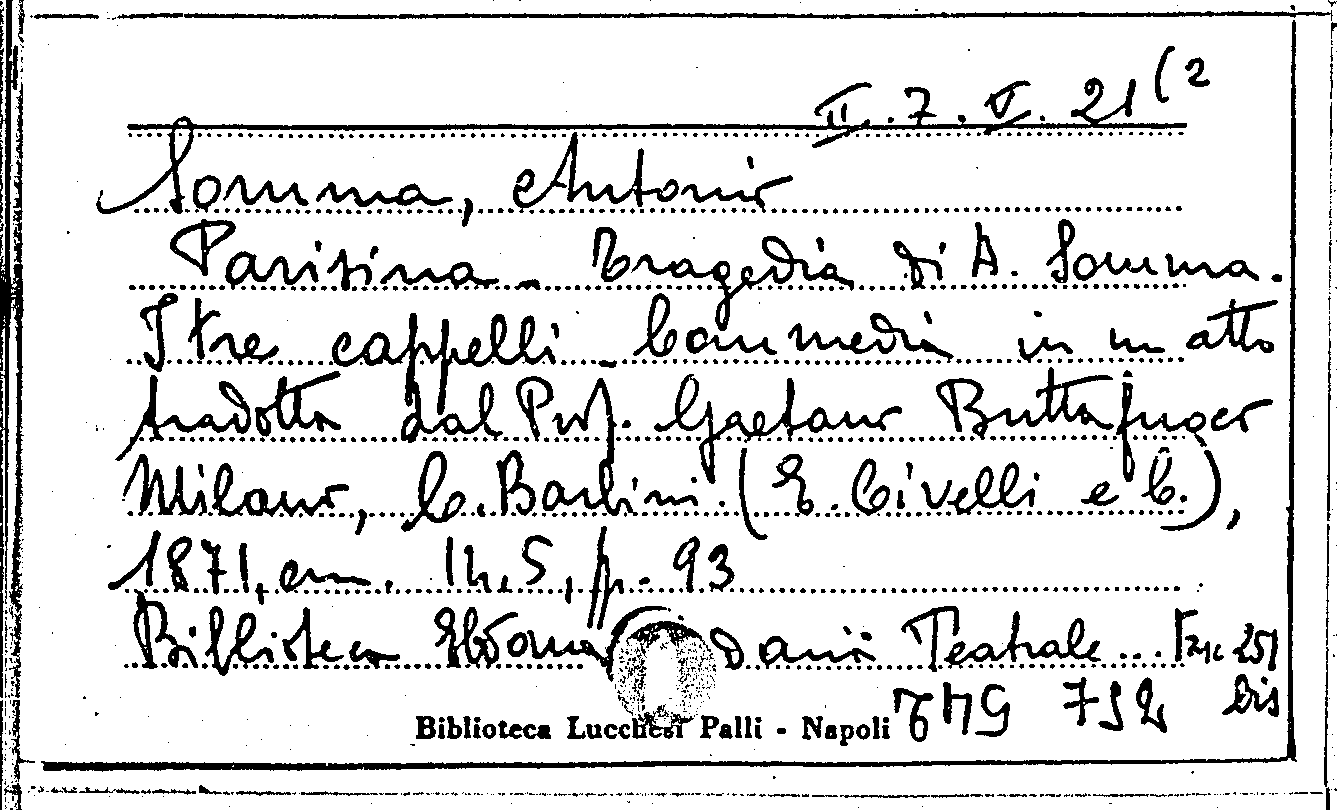 II. 7. V. 21 (2
Somma, Antonio
Parisina - Tragedia di A. Somma.
I tre cappelli - Commedia in un atto
tradotta dal Prof. Gaetano Buttafuoco
Milano, C. Barbini. (E. Civelli e C.),
1871, cm. 14,5, pp. 93
Biblioteca Ebdomadaria Teatrale... Fasc. 251
bis
Biblioteca Lucchesi Palli - Napoli